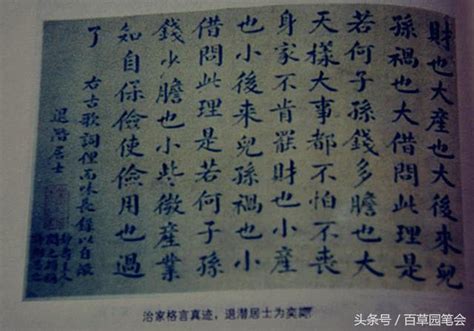 財也大產也大後來兒
孫禍也大借問此理是
若何子孫錢多膽也大
天樣大事都不怕不喪
身家不肯罷財也小產
也小後來兒孫禍也小
借問此理是若何子孫
錢少膽也小些微產業
知自保儉使儉用也過
了
右古歌詞俚而味長錄以自
退潛居士
治家格言真迹，退潜居士为奕
头条号 / 百草园笔会